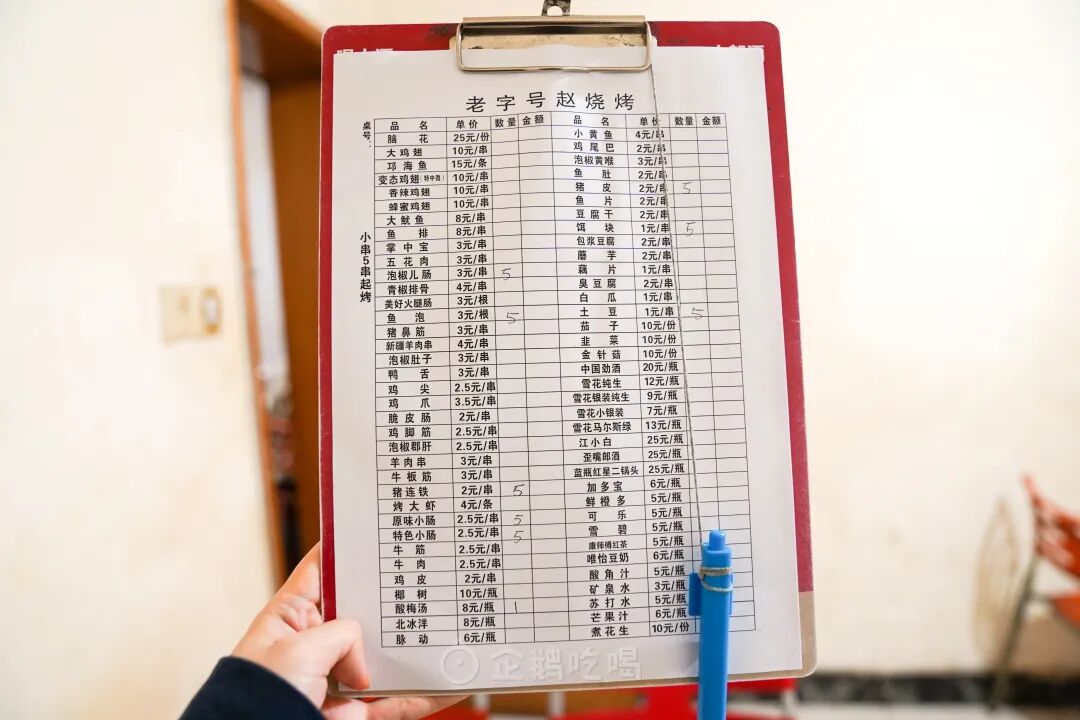 老字号赵烧烤
桌号:
小串5串起烤
品名 单价 数量 金额
脑花 25元/份
大鸡翅 10元/串
邛海鱼 15元/条
变态鸡翅(特中微) 10元/串
香辣鸡翅 10元/串
蜂蜜鸡翅 10元/串
大鱿鱼 8元/串
鱼排 8元/串
掌中宝 3元/串
五花肉 3元/串
泡椒儿肠 3元/串 5
青椒排骨 4元/串
美好火腿肠 3元/根
鱼泡 3元/根 5
猪鼻筋 3元/串
新疆羊肉串 4元/串
泡椒肚子 3元/串
鸭舌 3元/串
鸡尖 2.5元/串
鸡爪 3.5元/串
脆皮肠 2元/串
鸡脚筋 2.5元/串
泡椒郡肝 2.5元/串
羊肉串 3元/串
牛板筋 3元/串
猪连铁 2元/串 5
烤大虾 4元/条
原味小肠 2.5元/串 5
特色小肠 2.5元/串 5
牛筋 2.5元/串
牛肉 2.5元/串
鸡皮 2元/串
椰树 10元/瓶
酸梅汤 8元/瓶 1
北冰洋 8元/瓶
脉动 6元/瓶
品名 单价 数量 金额
小黄鱼 4元/串
鸡尾巴 2元/串
泡椒黄喉 3元/串
鱼肚 2元/串
猪皮 2元/串 5
鱼片 2元/串
豆腐干 2元/串
饵块 1元/串 5
包浆豆腐 2元/串
蘑芋 2元/串
藕片 1元/串
臭豆腐 2元/串
白瓜 1元/串
土豆 1元/串 5
茄子 10元/份
韭菜 10元/份
金针菇 10元/份
中国劲酒 20元/瓶
雪花纯生 12元/瓶
雪花银装纯生 9元/瓶
雪花小银装 7元/瓶
雪花马尔斯绿 13元/瓶
江小白 25元/瓶
歪嘴郎酒 25元/瓶
蓝瓶红星二锅头 25元/瓶
加多宝 6元/瓶
鲜橙多 5元/瓶
可乐 5元/瓶
雪碧 5元/瓶
康师傅红茶 5元/瓶
唯怡豆奶 6元/瓶
酸角汁 5元/瓶
矿泉水 3元/瓶
苏打水 5元/瓶
芒果汁 6元/瓶
煮花生 10元/份
企鹅吃喝